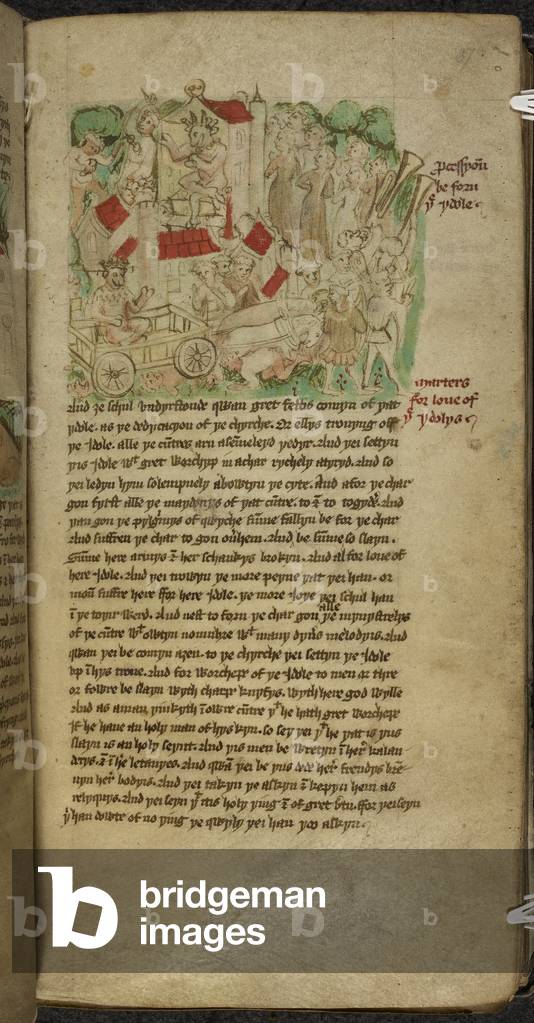 87
Processyou
be forn
yͤ ydole
And ȝe schul vndyrstonde qwan gret festis comyn of þat
ydole. as ye dedycacyon of ye chyrche. Or ellys tronyng off
ye ydole. alle ye cūtres arn asemeleyd yedyr. And yei settyn
yis ydole wͭ gret worchyp in a char rychely atyryd. And so
yei ledyn hym solempnely abowtyn ye cyte. And a for ye char
gon fyrst alle ye maydynys of yat cūtre. to & to togydr. And
yan gon ye pylgrinys of qwyche sūme fallyn be for ye char
And suffren ye char to gon ouhem. And be sūme so slayn.
Sūme here armys & her schankys brokyn. And al for loue of
here ydole. And yei trowyn ye more peyne yat yei han. or
mon suffre here ffor here ydole. ye more Joye yei schul han
marters
for loue of
yͤ ydolys
ī ye toyir werd. And nest to forn ye char gon alle ye mynystrelys
of ye cūtre wͭ owtyn nownbre wͭ many dyūs melodyis. And
qwan yei be comyn aȝen. to ye chyrche yei settyn ye ydole
vp ī hys trone. And for worchep of ye ydole to men or thre
or fowre be slayn wyth charp knyfys. wyth here god wylle
And as a man yinkyth ī owre cūtre yͭ he hath gret worchepe
If he haue an holy man of hys kyn. so sey yei yͭ he yat is yus
slayn is an holy seynt. And yis men be wretyn ī her kalan
derys. & ī he letanyes. And qwan yei be yus ded her frendys bre
nyn her bodyis. And yei takyn ye askyn & kepyn hem as
relyquys. And yei seyn yͭ it is holy ying & of gret vtu. ffor yei seyn
yͭ han dowte of no ying ye qwyly yei han yo askyn
b bridgeman
images